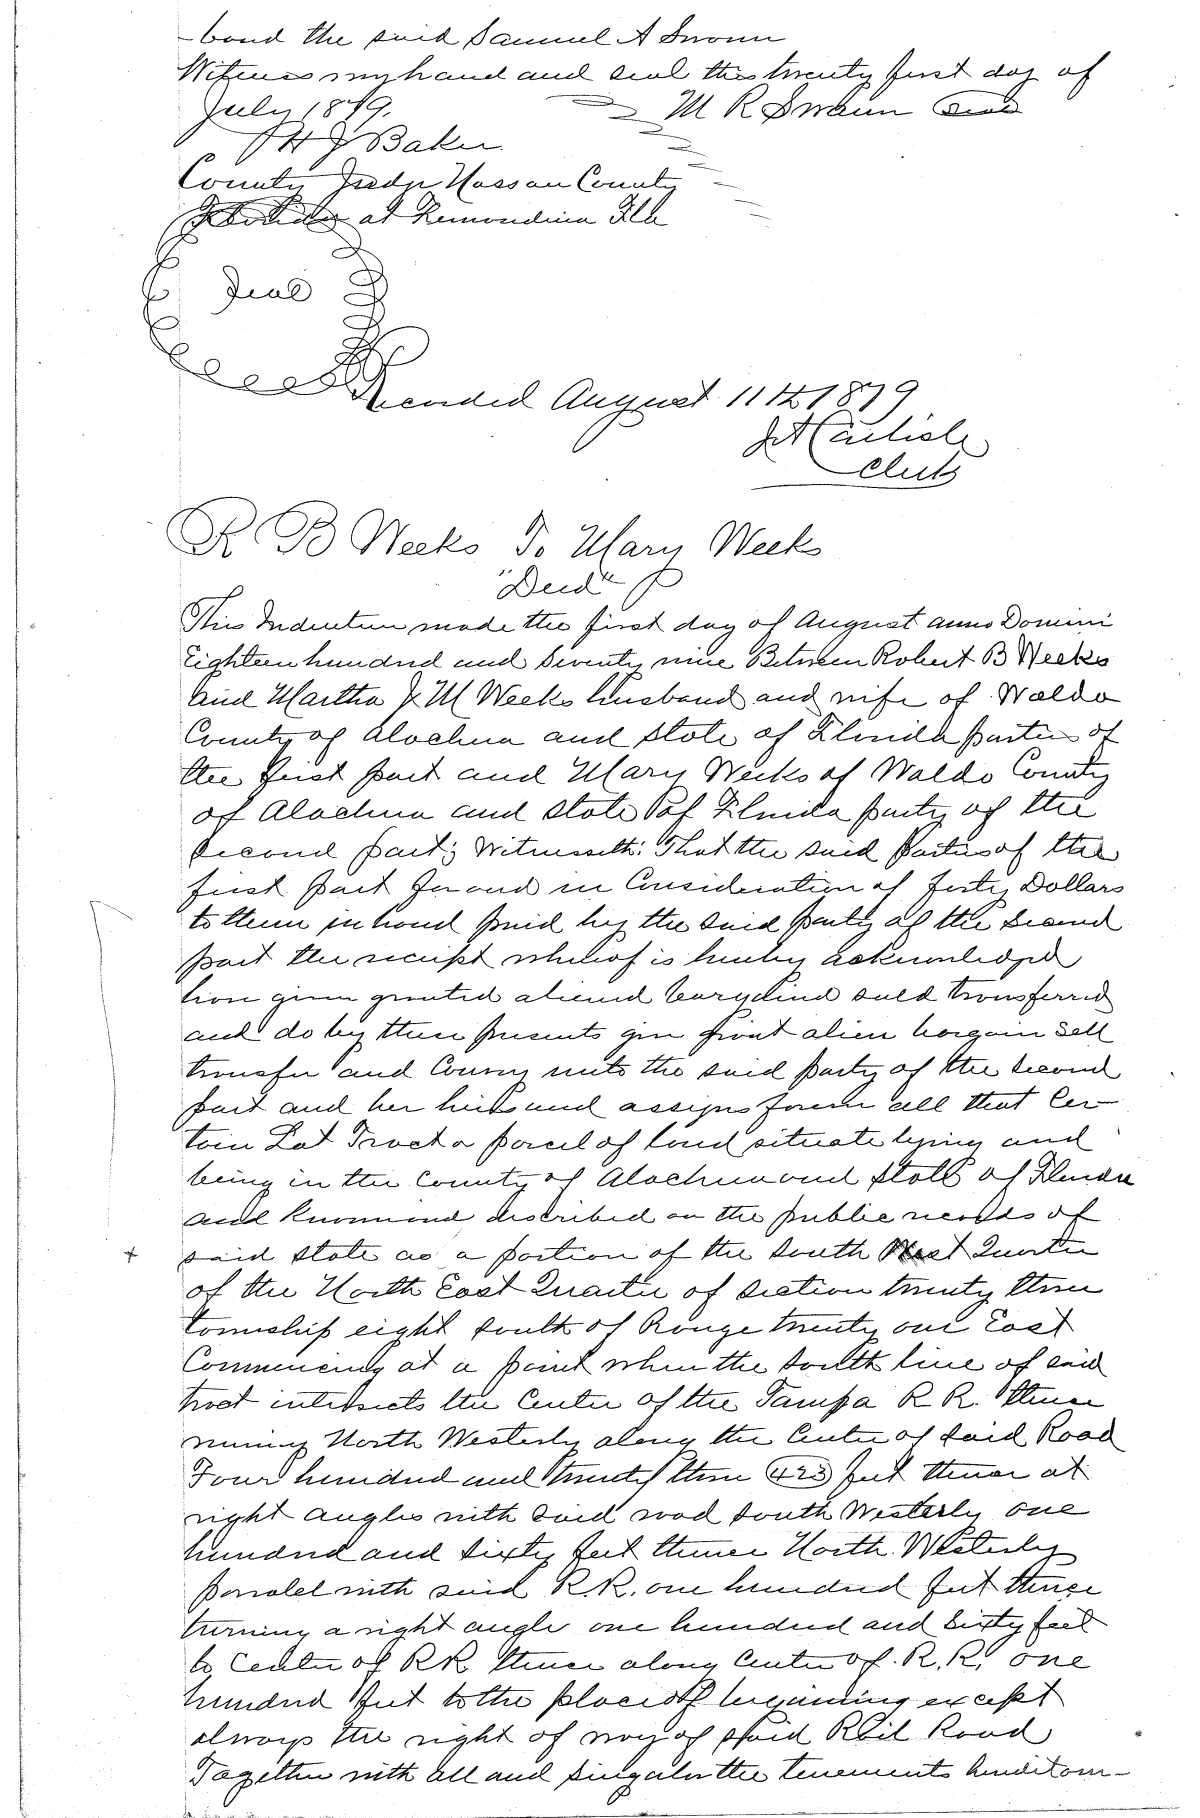 -bond the said Samuel A Swann
Witness my hand and seal this twenty first day of
July 1879. M R Swann Seal
H J Baker
County Judge Nassau County
at Fernandina Fla
Seal
Recorded August 11th 1879
J A Carlisle
Clerk
R B Weeks To Mary Weeks
"Deed"
This Indenture made the first day of August anno Domini
Eighteen hundred and Seventy nine Between Robert B Weeks
and Martha J. M Weeks husband and wife of Waldo
County of Alachua and State of Florida parties of
the first part and Mary Weeks of Waldo County
of Alachua and State of Florida party of the
second part; Witnesseth: That the said parties of the
first part for and in Consideration of forty Dollars
to them in hand paid by the said party of the second
part the receipt whereof is hereby acknowledged
have given granted aliened bargained sold transferred
and do by these presents give grant alien bargain sell
transfer and Convey unto the said party of the second
part and her heirs and assigns forever all that Cer-
tain Lot Tract or parcel of land situate lying and
being in the County of Alachua and State of Florida
and Known and described on the public records of
+ said State as a portion of the South West Quarter
of the North East Quarter of Section twenty three
township eight South of Range twenty one East
Commencing at a point where the South line of said
tract intersects the Center of the Tampa R R. thence
running North Westerly along the Center of said Road
Four hundred and twenty three (423) feet thence at
right angles with said road South Westerly one
hundred and sixty feet thence North Westerly
paralel with said R.R. one hundred feet thence
turning a right angle one hundred and sixty feet
to Center of RR thence along Center of R.R. one
hundred feet to the place of beginning except
always the right of way of said Rail Road
Together with all and singular the tenements heriditam-